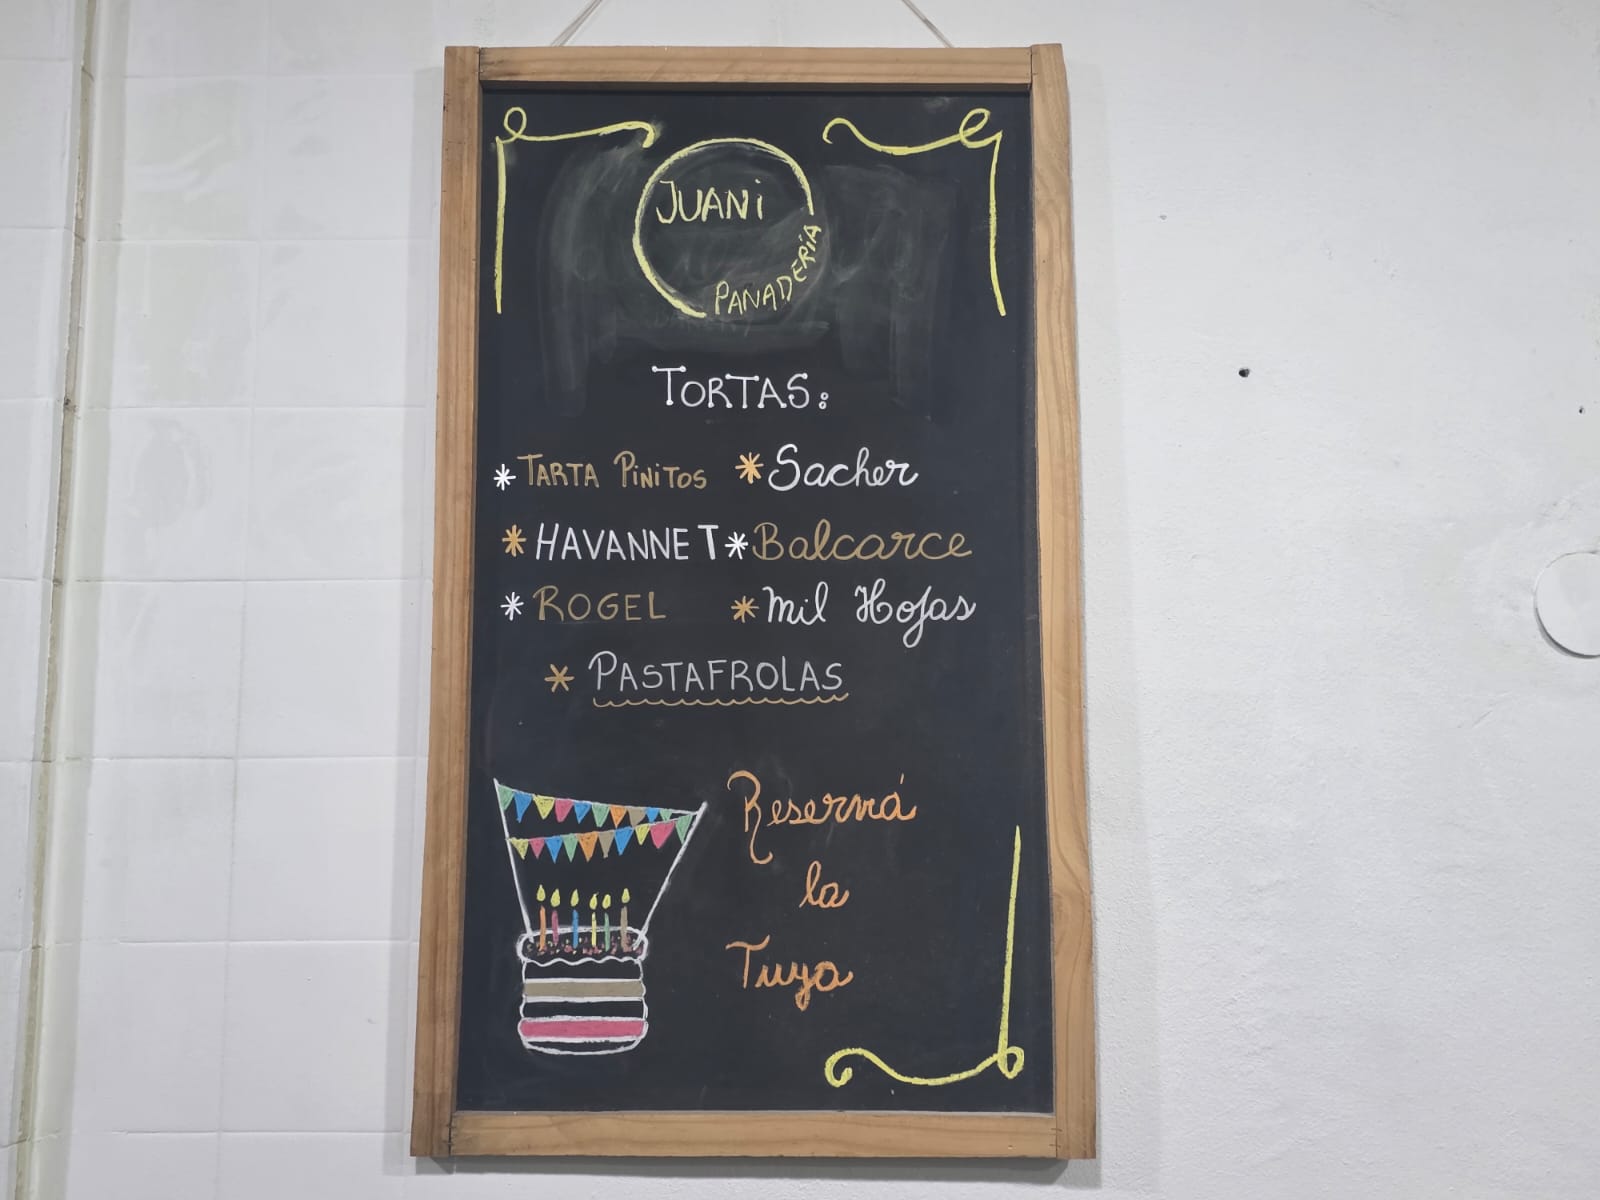 JUANi
PANADERÍA
TORTAS:
* TARTA PiNiTOS
* Sacher
* HAVANNET
* Balcarce
* ROGEL
* Mil Hojas
* PASTAFROLAS
Reservá
la
Tuya